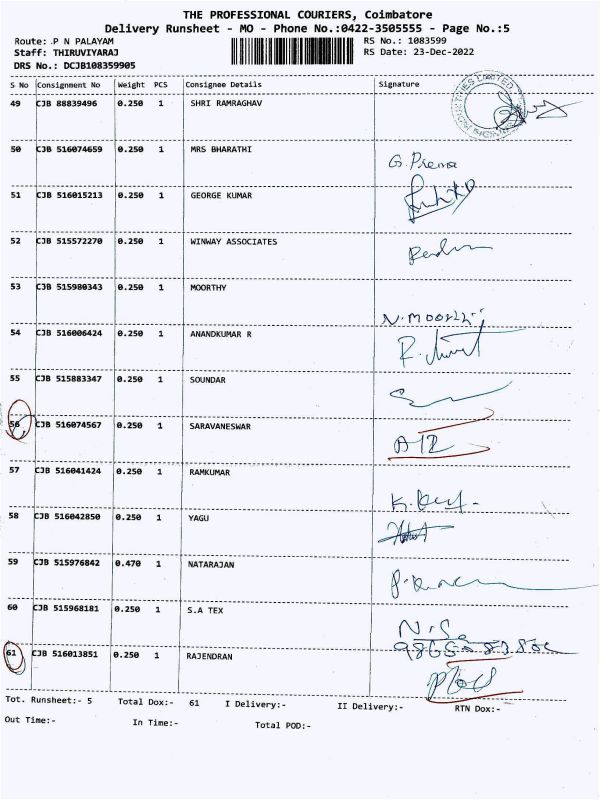 THE PROFESSIONAL COURIERS, Coimbatore
Delivery Runsheet - MO - Phone No.:0422-3505555 - Page No.:5
Route: .P N PALAYAM RS No.: 1083599
Staff: THIRUVIYARAJ RS Date: 23-Dec-2022
DRS No.: DCJB108359905
S No Consignment No Weight PCS Consignee Details Signature
49 CJB 88839496 0.250 1 SHRI RAMRAGHAV
50 CJB 516074659 0.250 1 MRS BHARATHI G.Prema
51 CJB 516015213 0.250 1 GEORGE KUMAR
52 CJB 515572270 0.250 1 WINWAY ASSOCIATES
53 CJB 515980343 0.250 1 MOORTHY
54 CJB 516006424 0.250 1 ANANDKUMAR R
55 CJB 515883347 0.250 1 SOUNDAR
56 CJB 516074567 0.250 1 SARAVANESWAR
57 CJB 516041424 0.250 1 RAMKUMAR
58 CJB 516042850 0.250 1 YAGU
59 CJB 515976842 0.470 1 NATARAJAN
60 CJB 515968181 0.250 1 S.A TEX
61 CJB 516013851 0.250 1 RAJENDRAN
Tot. Runsheet:- 5 Total Dox:- 61 I Delivery:- II Delivery:- RTN Dox:-
Out Time:- In Time:- Total POD:-